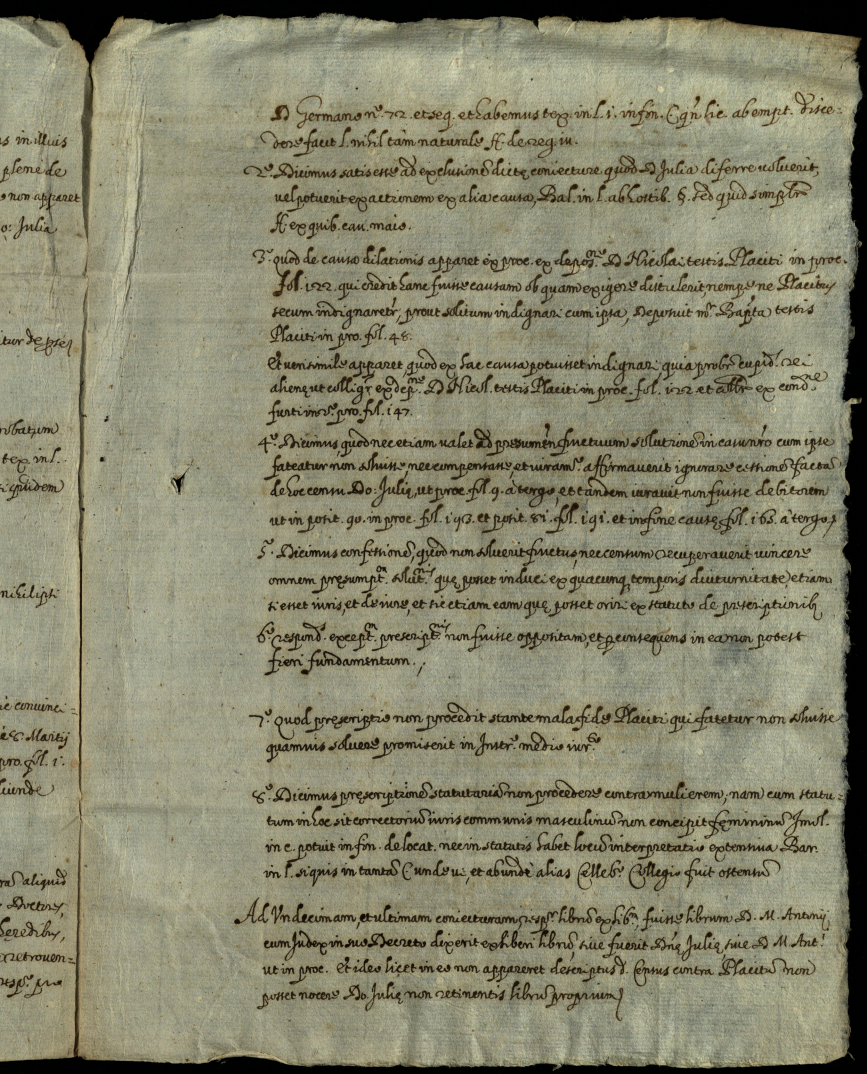 s in illius
plene de
e non apparet
o: Julia
robatum
tex. in l.
si quidem
nihil ipsi
ic convinci=
es 8 Martij
pro. fol. 1.
liunde
aliquid
Doctores,
heredibus,
retroven=
resp.e pro
D Germano n.o 72. et seq. et habemus tex. in l. 1. in fin. C qn lic. ab empt. disce=
dere facit l. nihil tam naturale ff. de reg. iu.
2.o Dicimus satis esse ad exclusione dicte coniecture quod D Julia diferre voluerit,
vel potuerit exactionem ex alia causa, Bal. in l. ab hostib. §. sed quid simplr
ff. ex quib. cau. maio.
3.o quod de causa dilationis apparet ex proc. ex depone D Nicolai testis Placiti in proc.
fol. 122. qui credit hanc fuisse causam ob quam exigere distulerit nempe ne Placitus
secum indignaretr, prout solitum indignari cum ipsa, deposuit mr Bapta testis
Placiti in pro. fol. 48.
Et verisimile apparet, quod ex hac causa potuisset indignari quia probr cupid. rei
aliene ut colligr ex depne D Nicol. testis Placiti in proc. fol. 122 et ex condne
furti in pro. fol. 147.
4.o Dicimus, quod nec etiam valet ad presumen fructuum solutione in casu nro cum ipse
fateatur non solvisse, nec compensasse, et iuram.o affirmaverit ignorare cessione facta
de hoc censu Do: Julie, ut proc. fol. 9. a tergo, et tandem iuravit non fuisse debitorem
ut in posit. 90. in proc. fol. 193. et posit. 81. fol. 191. et in fine cause fol. 163. a tergo,
5.o Dicimus confessione, quod non solverit fructus, nec censum recuperaverit vincere
omnem presumpt. solut. que posset induci ex quacunq temporis diuturnitate, etiam
si esset iuris, et de iure, et sic etiam eam que posset oriri ex statuto de prescriptionib
6.o respond.o except. prescript. non fuisse oppositam, et per consequens in ea non potest
fieri fundamentum.
7.o Quod prescriptio non procedit stante mala fide Placiti qui fatetur non solvisse
quamvis solvere promiserit in Instr.o medio iur.to
8.o Dicimus prescriptione statutaria non procedere contra mulierem, nam cum statu=
tum in hoc sit correctoriu iuris communis masculinu non concipit femininu Imol.
in c. potuit in fin. de locat. nec in statutis habet locu interpretatio extensiva Bar.
in l. si quis in tanta C unde vi, et abunde alias Celleb.o Collegio fuit ostensu
Ad Undecimam, et ultimam coniecturam, resp.r libru exhib.m fuisse librum D. M. Antonij
cum Judex in suo Decreto dixerit exhiberi libru, sive fuerit Dne Julie, sive D M. Ant.i
ut in proc. Et ideo licet in eo non appareret descriptus d. Census contra Placitu non
posset nocere Do Julie non retinentis libru proprium